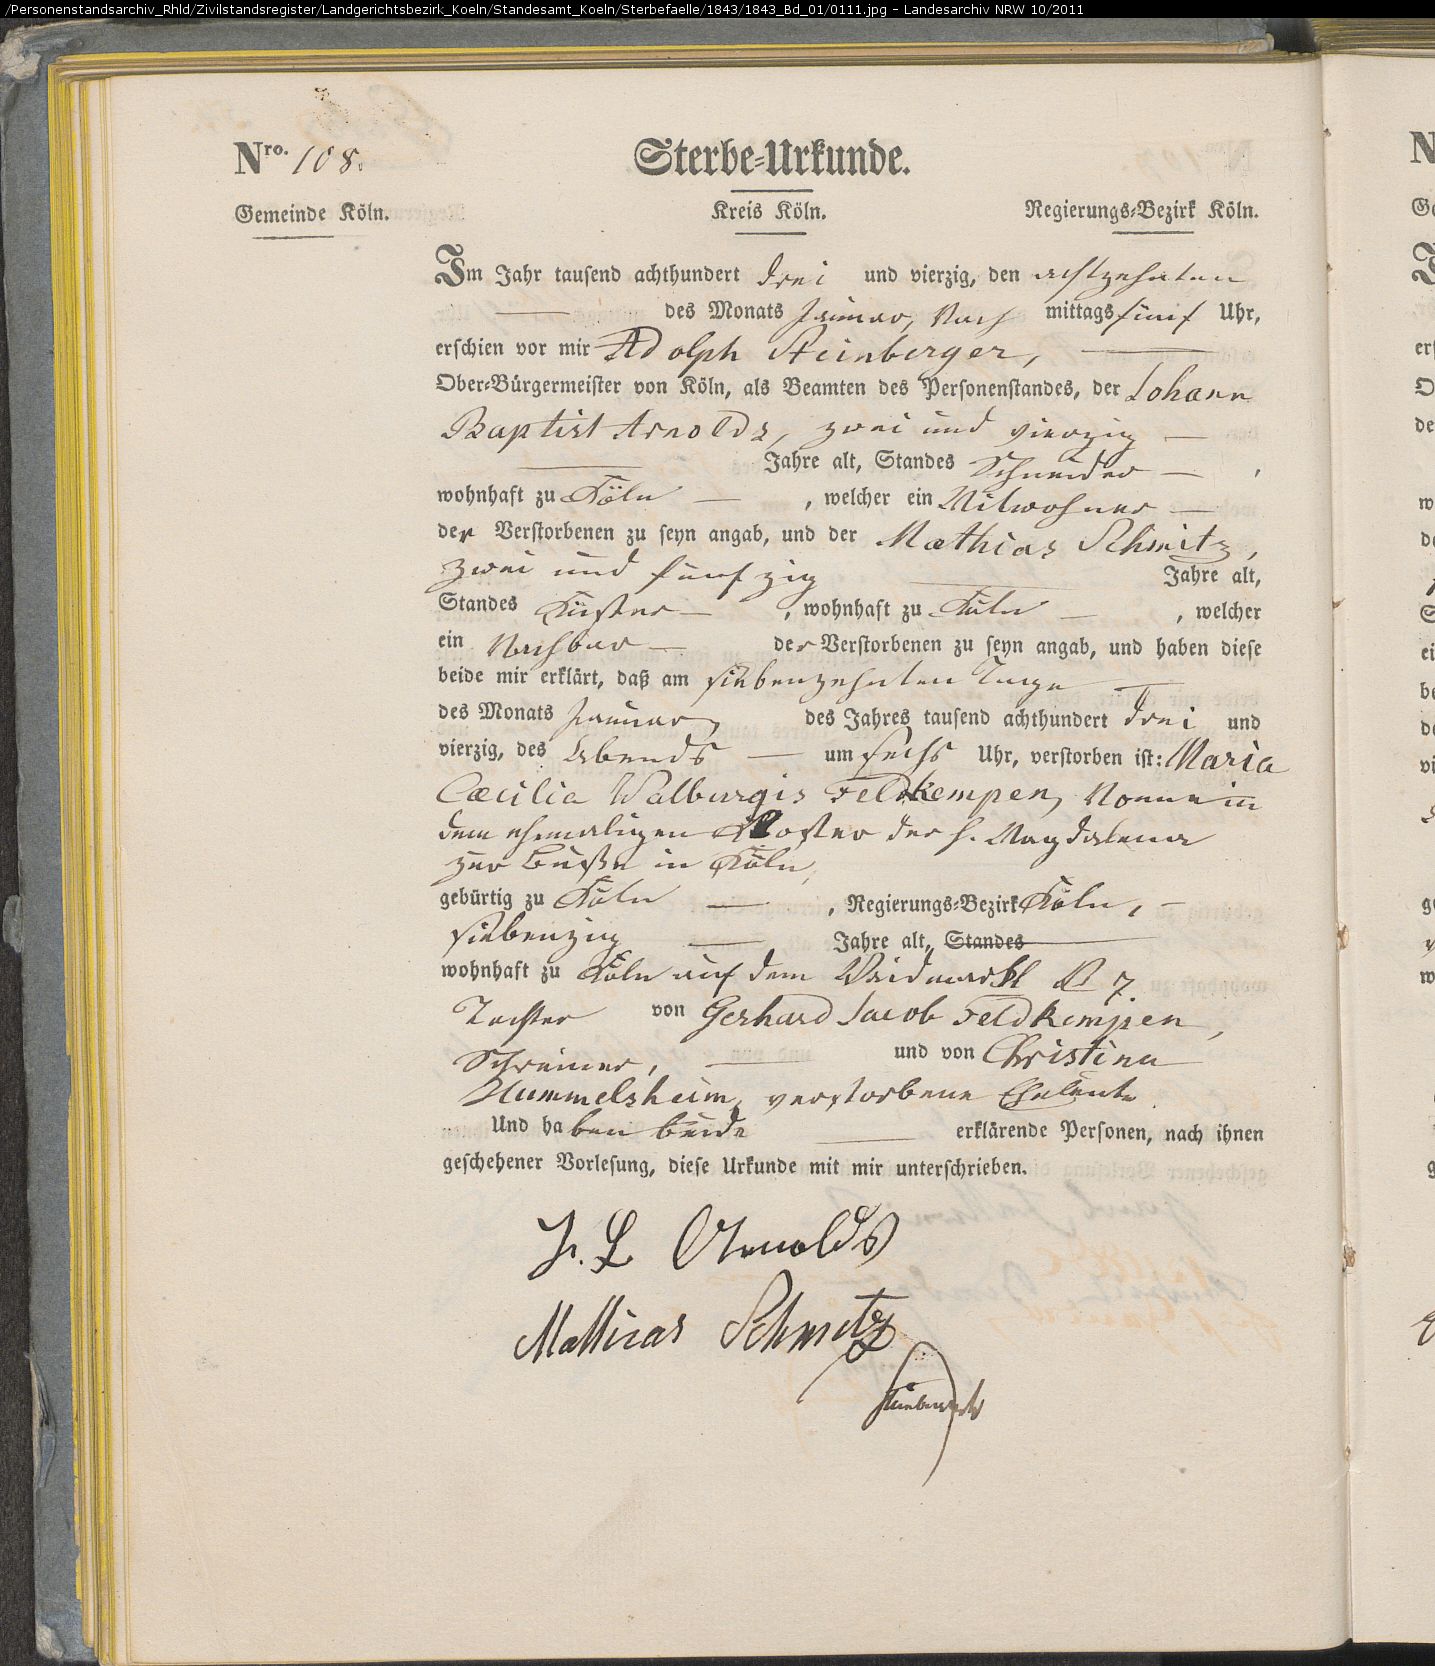 /Personenstandsarchiv_Rhld/Zivilstandsregister/Landgerichtsbezirk_Koeln/Standesamt_Koeln/Sterbefaelle/1843/1843_Bd_01/0111.jpg - Landesarchiv NRW 10/2011
Nro. 108.
Sterbe-Urkunde.
Gemeinde Köln. Kreis Köln. Regierungs-Bezirk Köln.
Im Jahr tausend achthundert drei und vierzig, den achtzehnten
des Monats Januar, Nach mittags fünf Uhr,
erschien vor mir Adolph Steinberger,
Ober-Bürgermeister von Köln, als Beamten des Personenstandes, der Johann
Baptist Arnolds, zwei und vierzig
Jahre alt, Standes Schneider,
wohnhaft zu Köln, welcher ein Mitwohner
der Verstorbenen zu seyn angab, und der Mathias Schmitz,
zwei und fünfzig Jahre alt,
Standes Küster, wohnhaft zu Köln, welcher
ein Nachbar der Verstorbenen zu seyn angab, und haben diese
beide mir erklärt, daß am siebenzehnten Tage
des Monats Januar, des Jahres tausend achthundert drei und
vierzig, des Abends um sechs Uhr, verstorben ist: Maria
Cæcilia Walburgis Feldkempen, Nonne in
dem ehemaligen Kloster der h. Magdalena
zur Buße in Köln,
gebürtig zu Köln, Regierungs-Bezirk Köln,
siebenzig Jahre alt, Standes
wohnhaft zu Köln auf dem Waidmarkt N 7.
Tochter von Gerhard Jacob Feldkempen,
Schreiner, und von Christina
Hummelsheim, verstorbene Eheleute
Und haben beide erklärende Personen, nach ihnen
geschehener Vorlesung, diese Urkunde mit mir unterschrieben.
J. B Arnolds
Mathias Schmitz
Steinberger